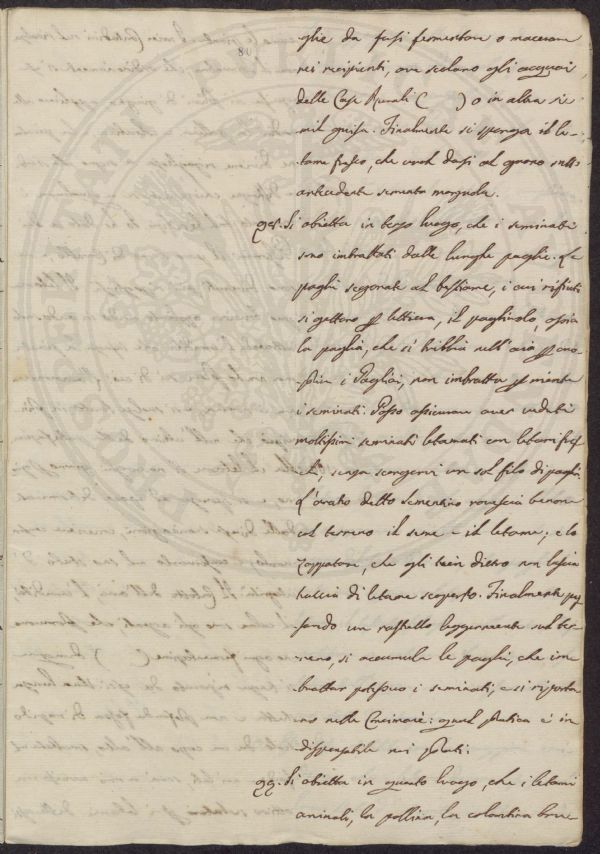 80
glie da farsi fermentare o macerare
nei recipienti, ove scolano gli acquai
delle Case Rurali ( ) o in altra si-
mil guisa. Finalmente si sparga il le-
tame fresco, che vuol darsi al grano sull'
antecedente semente marzuola.
Si obietta in terzo luogo, che i seminati
sono imbrattati dalle lunghe paglie. Le
paglie segonate al bestiame, i cui rifiuti
si gettano per lettiera, il pagliuolo, ossia
la paglia, che si tribbia nell'aia per
i Pagliai, non imbratta per niente
i seminati. Posso assicurare aver veduti
moltissimi seminati letamati con letami
senza scorgervi un sol filo di paglia.
L'arato detto Sementino rovescia benone
col terreno il seme e il letame; e lo
Zappatore, che gli tien dietro non lascia
traccia di letame scoperto. Finalmente pas-
sando un rastello leggermente sul ter-
reno, si accumula le paglie, che im-
brattar potessero i seminati, e si riporta-
no nelle Concimaie: qual pratica è in-
dispensabile nei Prati.
99. Si obietta in quarto luogo, che i letami
animali, la pollina, la colombina